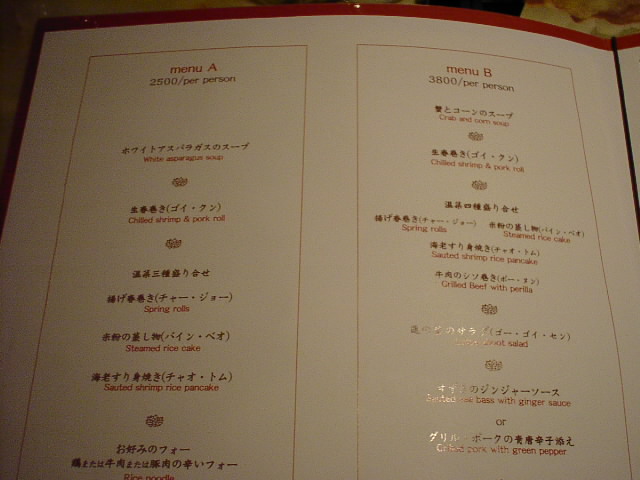 menu A
2500/per person
ホワイトアスパラガスのスープ
White asparagus soup
生春巻き(ゴイ・クン)
Chilled shrimp & pork roll
温菜三種盛り合せ
揚げ春巻き(チャー・ジョー)
Spring rolls
米粉の蒸し物(バイン・ベオ)
Steamed rice cake
海老すり身焼き(チャオ・トム)
Sauted shrimp rice pancake
お好みのフォー
鶏または牛肉または豚肉の辛いフォー
Rice noodle
menu B
3800/per person
蟹とコーンのスープ
Crab and corn soup
生春巻き(ゴイ・クン)
Chilled shrimp & pork roll
温菜四種盛り合せ
揚げ春巻き(チャー・ジョー) 米粉の蒸し物(バイン・ベオ)
Spring rolls Steamed rice cake
海老すり身焼き(チャオ・トム)
Sauted shrimp rice pancake
牛肉のシソ巻き(ボー・ヌン)
Grilled Beef with perilla
のサラダ(ゴー・ゴイ・セン)
salad
すずきのジンジャーソース
Sauted sea bass with ginger sauce
or
グリル・ポークの青唐辛子添え
Grilled pork with green pepper